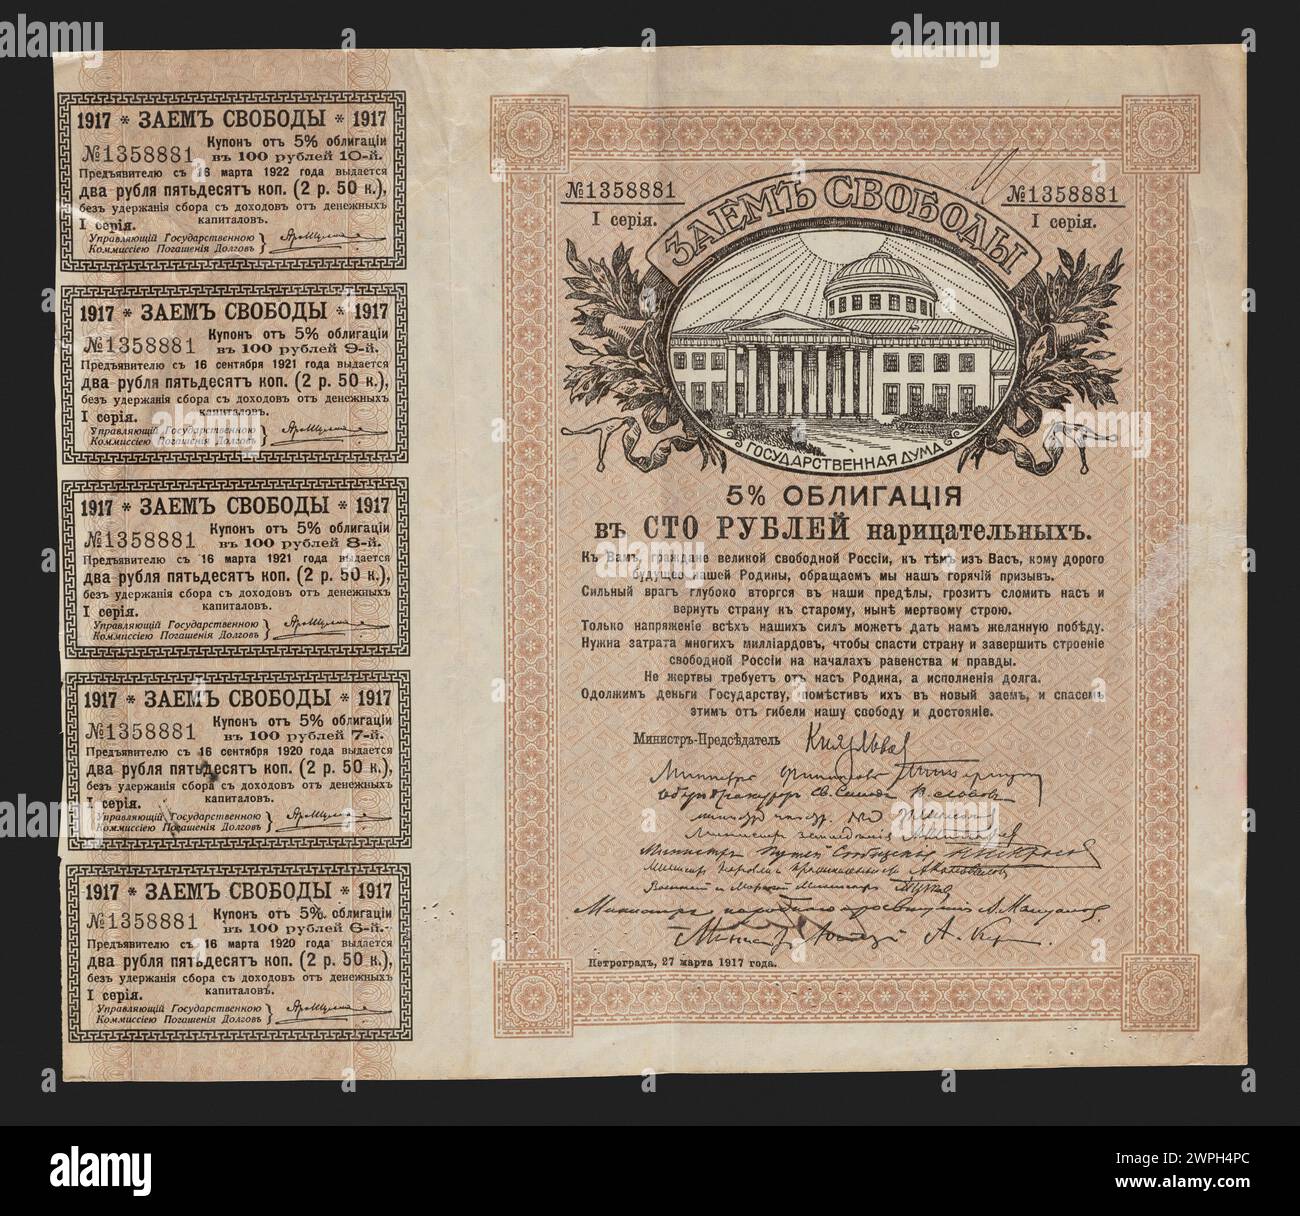 1917 * ЗАЕМЪ СВОБОДЫ * 1917
Купонъ отъ 5% облигаціи
№1358881 въ 100 рублей 10-й.
Предъявителю съ 16 марта 1922 года выдается
два рубля пятьдесятъ коп. (2 р. 50 к.),
безъ удержанія сбора съ доходовъ отъ денежныхъ
I серія. капиталовъ.
Управляющій Государственною
Коммиссіею Погашенія Долговъ
1917 * ЗАЕМЪ СВОБОДЫ * 1917
Купонъ отъ 5% облигаціи
№1358881 въ 100 рублей 9-й.
Предъявителю съ 16 сентября 1921 года выдается
два рубля пятьдесятъ коп. (2 р. 50 к.),
безъ удержанія сбора съ доходовъ отъ денежныхъ
I серія. капиталовъ.
Управляющій Государственною
Коммиссіею Погашенія Долговъ
1917 * ЗАЕМЪ СВОБОДЫ * 1917
Купонъ отъ 5% облигаціи
№1358881 въ 100 рублей 8-й.
Предъявителю съ 16 марта 1921 года выдается
два рубля пятьдесятъ коп. (2 р. 50 к.),
безъ удержанія сбора съ доходовъ отъ денежныхъ
I серія. капиталовъ.
Управляющій Государственною
Коммиссіею Погашенія Долговъ
1917 * ЗАЕМЪ СВОБОДЫ * 1917
Купонъ отъ 5% облигаціи
№1358881 въ 100 рублей 7-й.
Предъявителю съ 16 сентября 1920 года выдается
два рубля пятьдесятъ коп. (2 р. 50 к.),
безъ удержанія сбора съ доходовъ отъ денежныхъ
I серія. капиталовъ.
Управляющій Государственною
Коммиссіею Погашенія Долговъ
1917 * ЗАЕМЪ СВОБОДЫ * 1917
Купонъ отъ 5% облигаціи
№1358881 въ 100 рублей 6-й.
Предъявителю съ 16 марта 1920 года выдается
два рубля пятьдесятъ коп. (2 р. 50 к.),
безъ удержанія сбора съ доходовъ отъ денежныхъ
I серія. капиталовъ.
Управляющій Государственною
Коммиссіею Погашенія Долговъ
№1358881 №1358881
I серія. I серія.
ЗАЕМЪ СВОБОДЫ
ГОСУДАРСТВЕННАЯ ДУМА
5% ОБЛИГАЦІЯ
въ СТО РУБЛЕЙ нарицательныхъ.
Къ Вамъ, граждане великой свободной Россіи, къ тѣмъ изъ Васъ, кому дорого
будущее нашей Родины, обращаемъ мы нашъ горячій призывъ.
Сильный врагъ глубоко вторгся въ наши предѣлы, грозитъ сломить насъ и
вернуть страну къ старому, нынѣ мертвому строю.
Только напряженіе всѣхъ нашихъ силъ можетъ дать намъ желанную побѣду.
Нужна затрата многихъ милліардовъ, чтобы спасти страну и завершить строеніе
свободной Россіи на началахъ равенства и правды.
Не жертвы требуетъ отъ насъ Родина, а исполненія долга.
Одолжимъ деньги Государству, помѣстивъ ихъ въ новый заемъ, и спасемъ
этимъ отъ гибели нашу свободу и достояніе.
Министръ-Предсѣдатель Князь Львов
Министръ Финансовъ
Оберъ-Прокуроръ Св. Синода В. Львовъ
Министръ земледѣлія
Министръ Путей Сообщенія
Военный и Морской Министръ
Министръ народнаго просвѣщенія А. Мануиловъ
Министръ Юстиціи А. Кер
Петроградъ, 27 марта 1917 года.
alamy
Image ID: 2WPH4PC
www.alamy.com